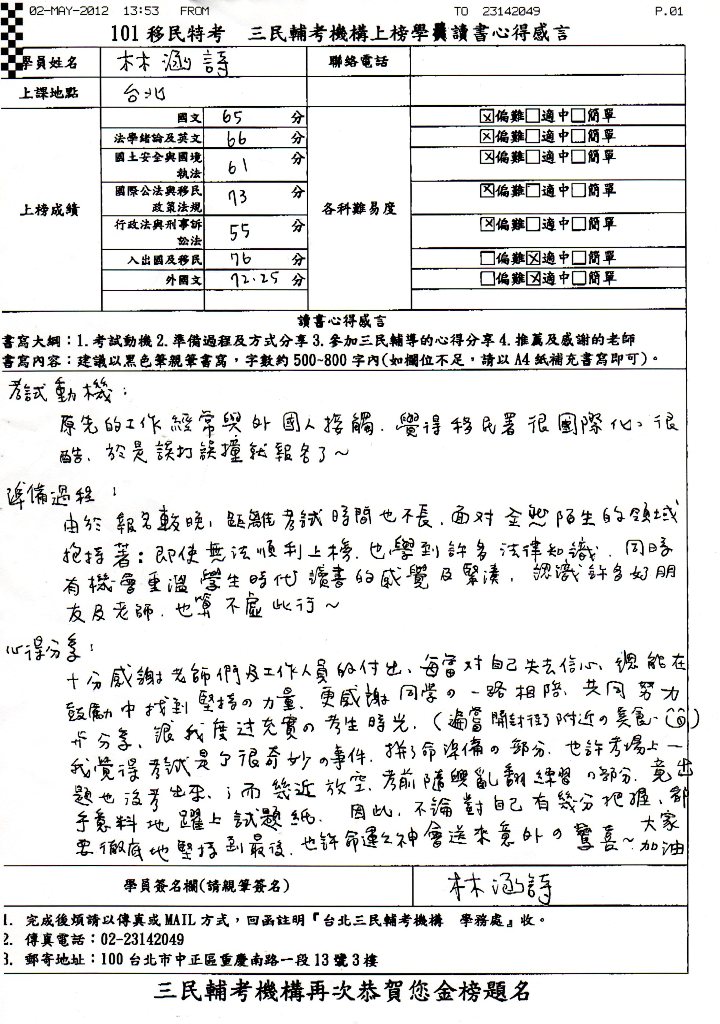 02-MAY-2012 13:53 FROM TO 23142049 P.01
101 移民特考 三民輔考機構上榜學員讀書心得感言
學員姓名 林涵詩 聯絡電話
上課地點 台北
上榜成績 各科難易度
國文 65 分 ☒偏難□適中□簡單
法學緒論及英文 66 分 ☒偏難□適中□簡單
國土安全與國境執法 61 分 ☒偏難□適中□簡單
國際公法與移民政策法規 73 分 ☒偏難□適中□簡單
行政法與刑事訴訟法 55 分 ☒偏難□適中□簡單
入出國及移民 76 分 □偏難☒適中□簡單
外國文 72.25 分 □偏難☒適中□簡單
讀書心得感言
書寫大綱：1.考試動機 2.準備過程及方式分享 3.參加三民輔導的心得分享 4.推薦及感謝的老師
書寫內容：建議以黑色筆親筆書寫，字數約 500~800 字內(如欄位不足，請以 A4 紙補充書寫即可)。
考試動機：
原先的工作經常與外國人接觸，覺得移民署很國際化、很
酷，於是誤打誤撞就報名了~
準備過程：
由於報名較晚，距離考試時間也不長，面对全然陌生的領域
抱持著：即使無法順利上榜，也學到許多法律知識，同時
有機會重溫學生時代讀書的感覺及緊湊，認識許多好朋
友及老師，也算不虛此行~
心得分享：
十分感謝老師們及工作人員的付出，每當对自己失去信心，總能在
鼓勵中找到堅持の力量，更感謝同學の一路相陪、共同努力
分享，跟我度过充實の考生時光，(遍嚐開封街附近の美食
我覺得考試是个很奇妙の事件，拼了命準備の部分，也許考場上一
題也沒考出來，；而幾近放空、考前隨興亂翻練習の部分，竟出
乎意料地躍上試題紙。因此，不論對自己有幾分把握，都
要徹底地堅持到最後，也許命運之神會送來意外の驚喜~大家加油
學員簽名欄(請親筆簽名) 林涵詩
1. 完成後煩請以傳真或 MAIL 方式，回函註明『台北三民輔考機構 學務處』收。
2. 傳真電話：02-23142049
3. 郵寄地址：100 台北市中正區重慶南路一段 13 號 3 樓
三民輔考機構再次恭賀您金榜題名